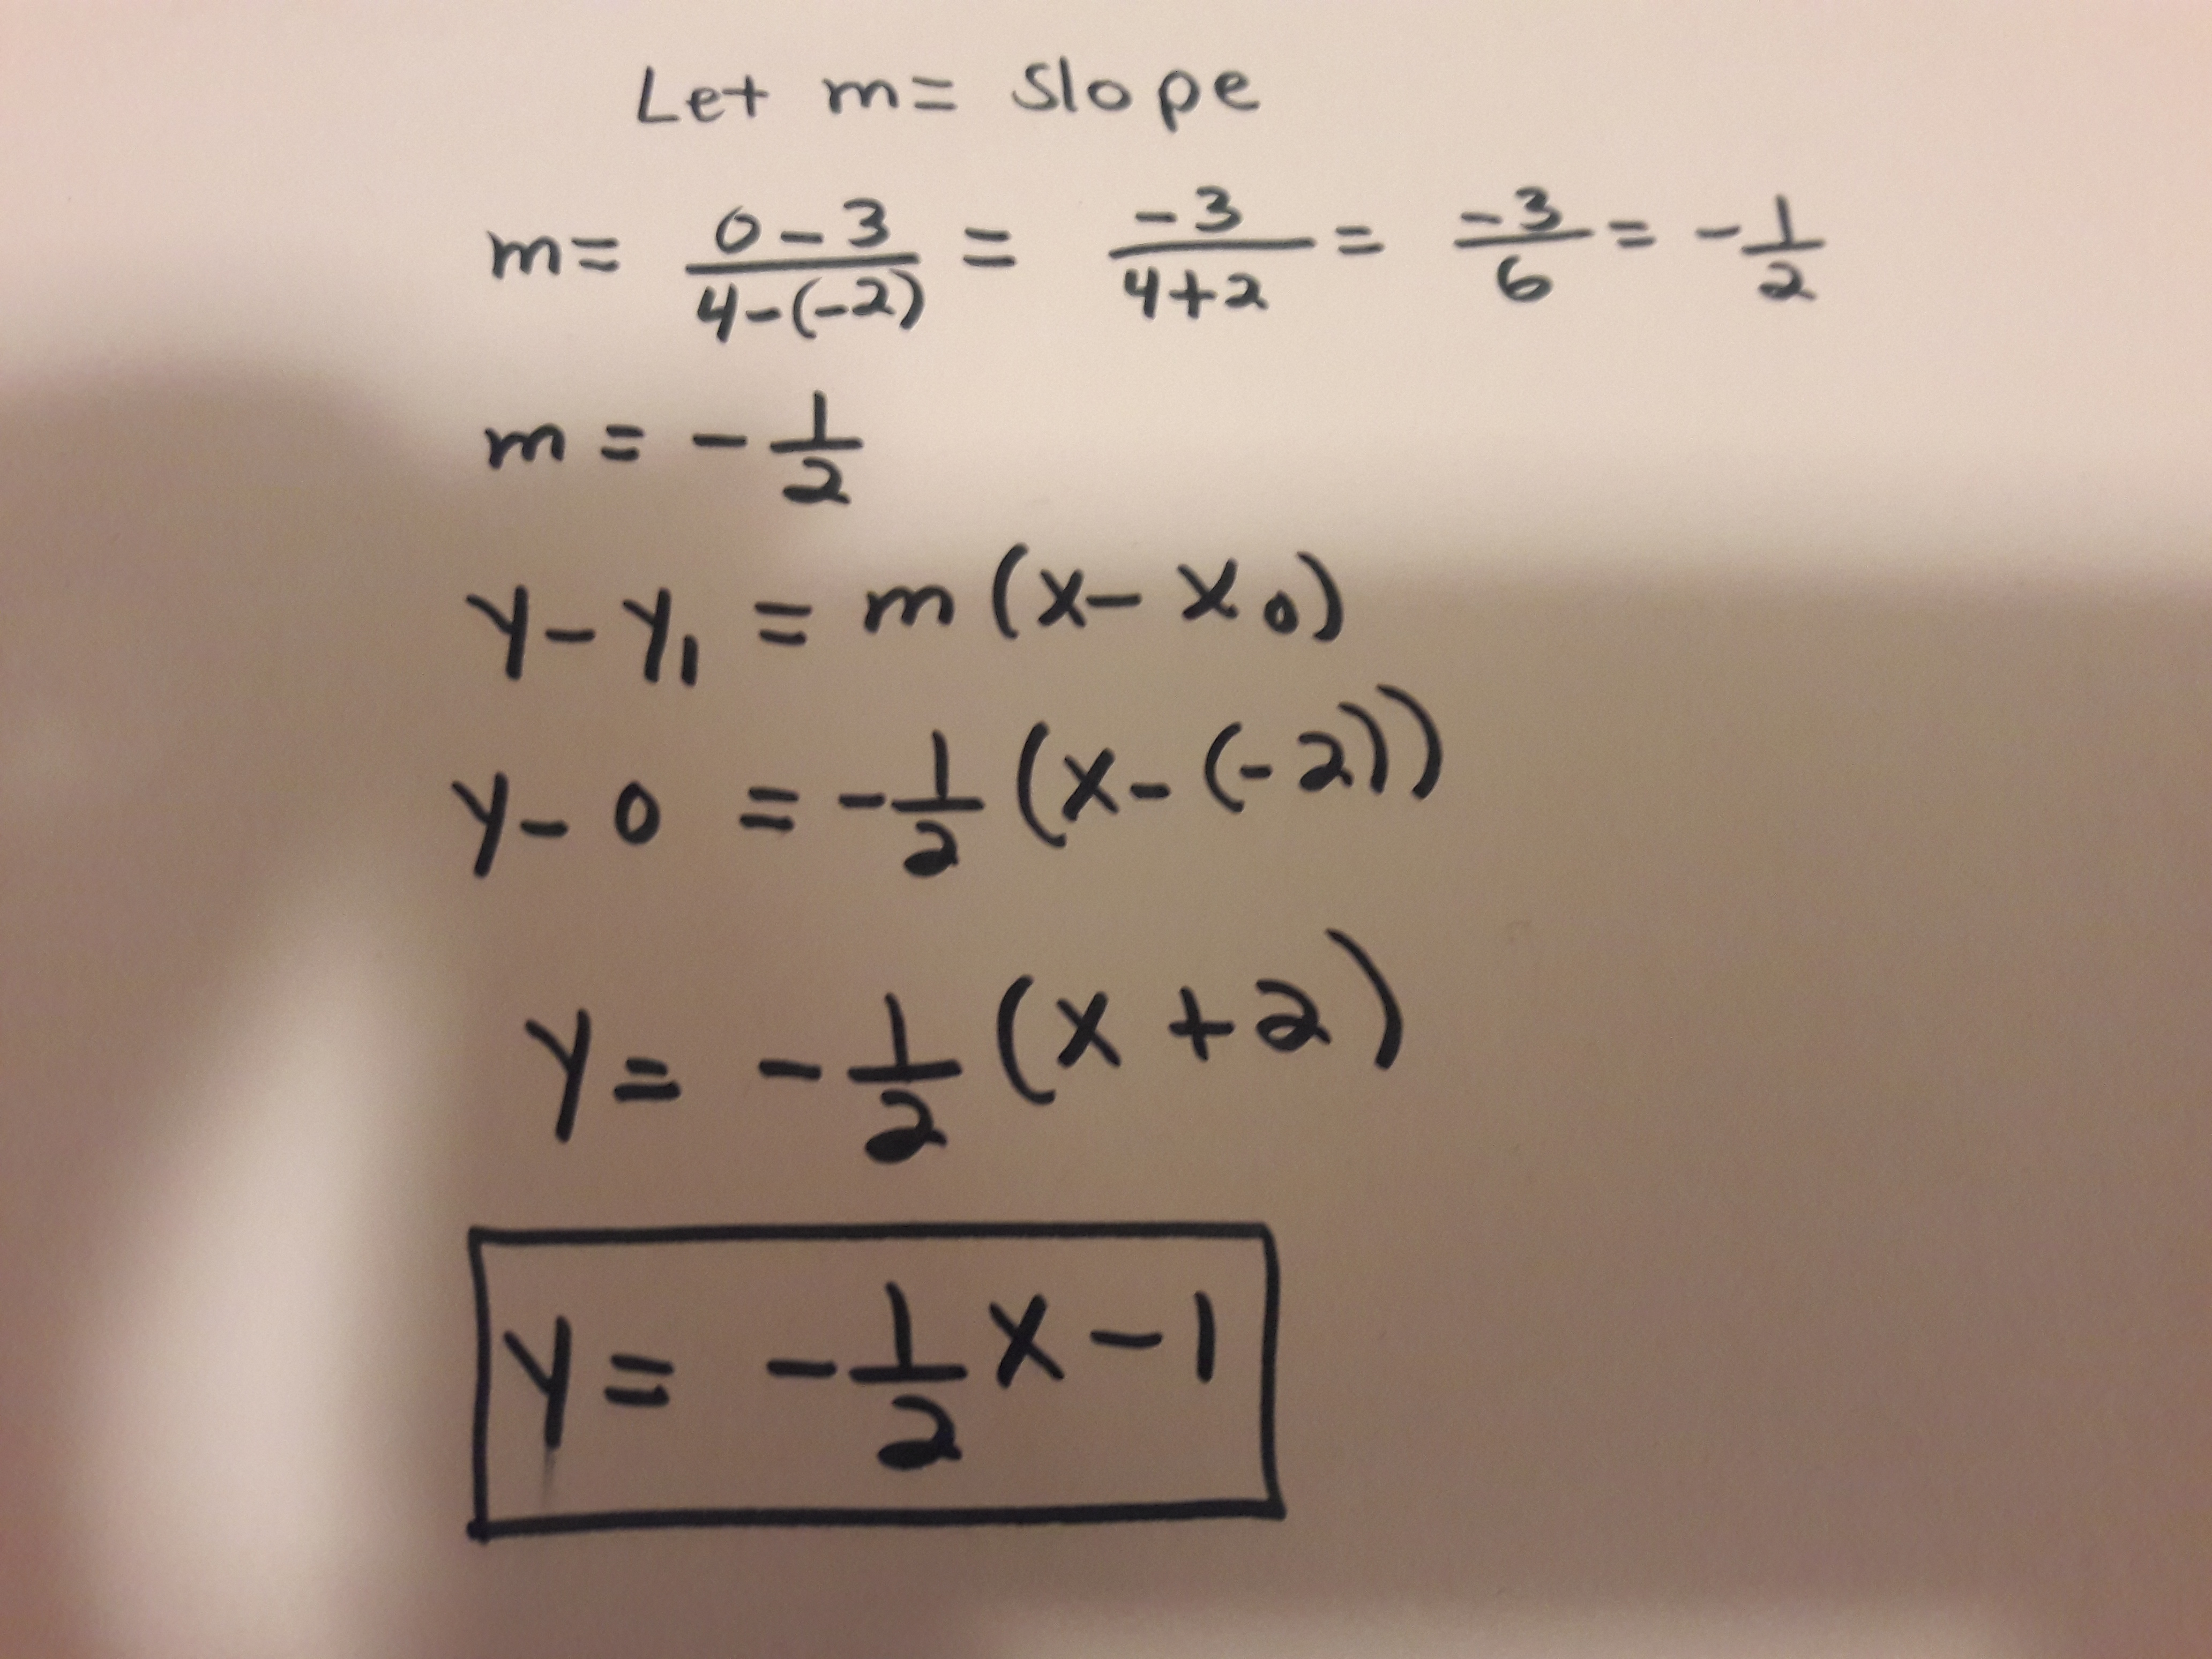 Let m = Slope
m = \frac{0-3}{4-(-2)} = \frac{-3}{4+2} = \frac{-3}{6} = -\frac{1}{2}
m = -\frac{1}{2}
y - y₁ = m (x - x₀)
y - 0 = -\frac{1}{2} (x - (-2))
y = -\frac{1}{2} (x + 2)
y = -\frac{1}{2} x - 1